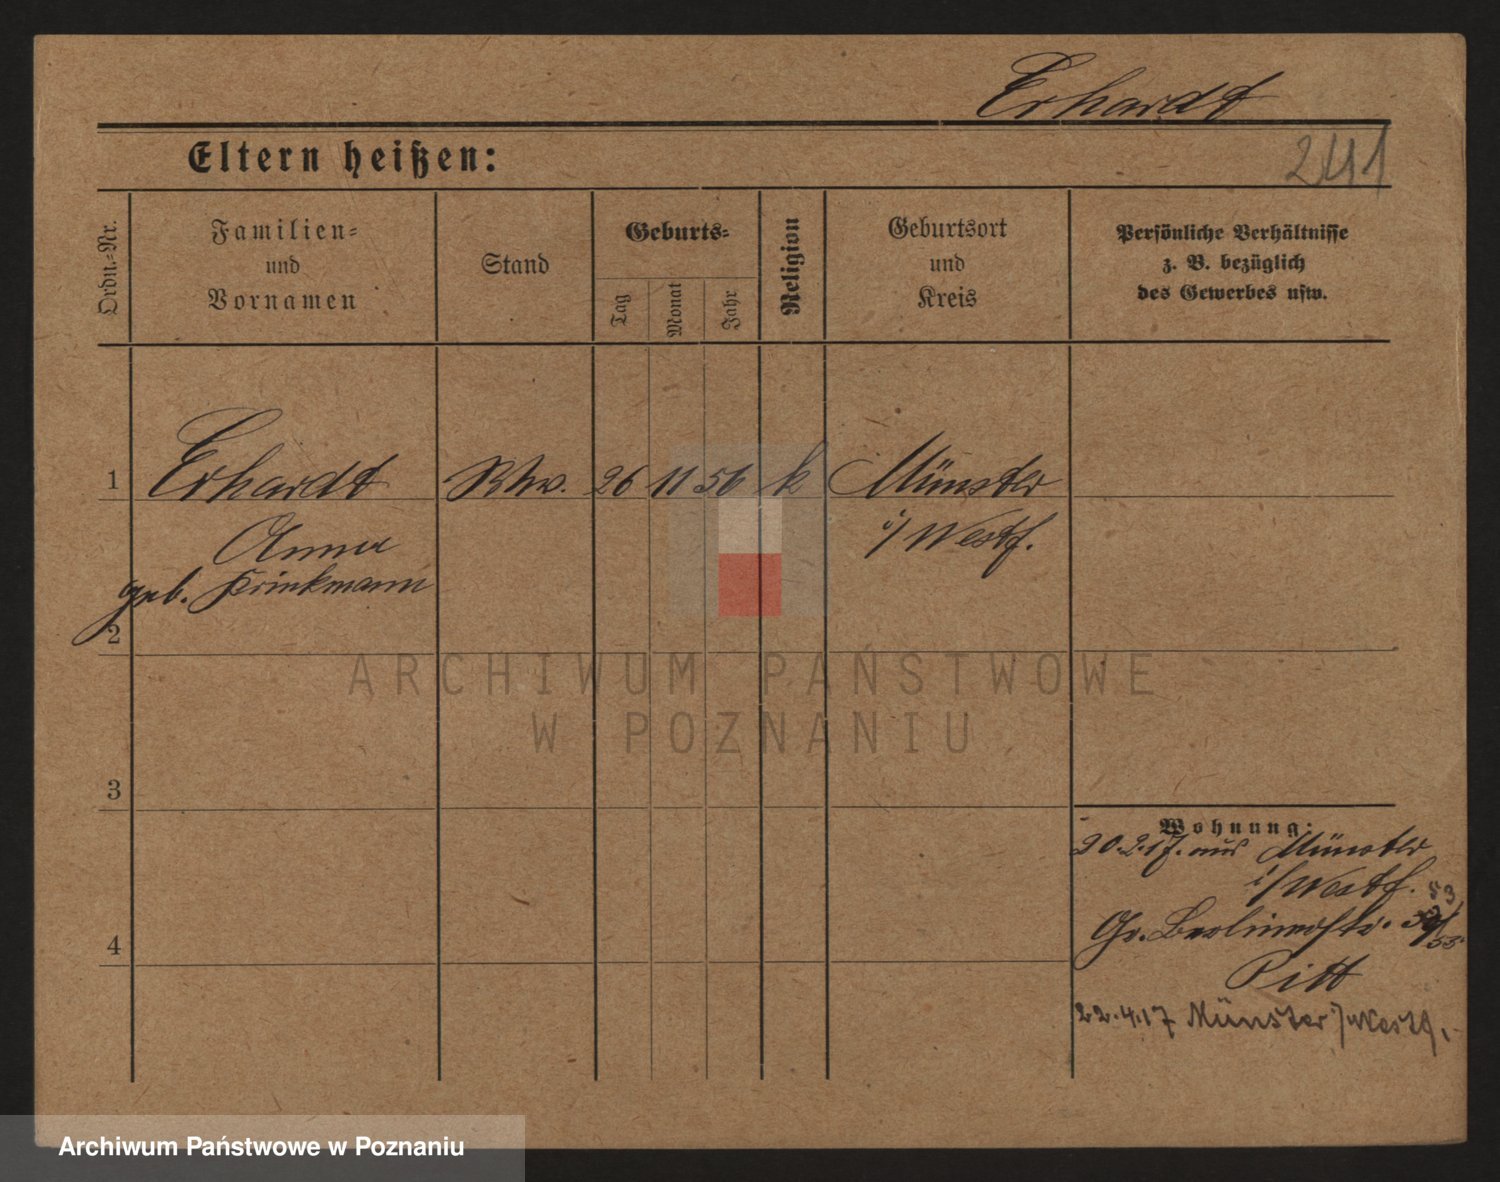 Erhardt
241
Eltern heißen:
Ordn.=Nr.
Familien=
und
Vornamen
Stand
Geburts=
Tag
Monat
Jahr
Religion
Geburtsort
und
Kreis
Persönliche Verhältnisse
z. B. bezüglich
des Gewerbes usw.
1
Erhardt
Anna
geb. Brinkmann
26 11 56
k
Münster
i/ Westf.
2
3
4
Wohnung:
20.2.17. aus Münster
i/Westf.
53
Gr. Berlinerstr.
Pitt
22.4.17 Münster i/Westf.
ARCHIWUM PAŃSTWOWE
W POZNANIU
Archiwum Państwowe w Poznaniu